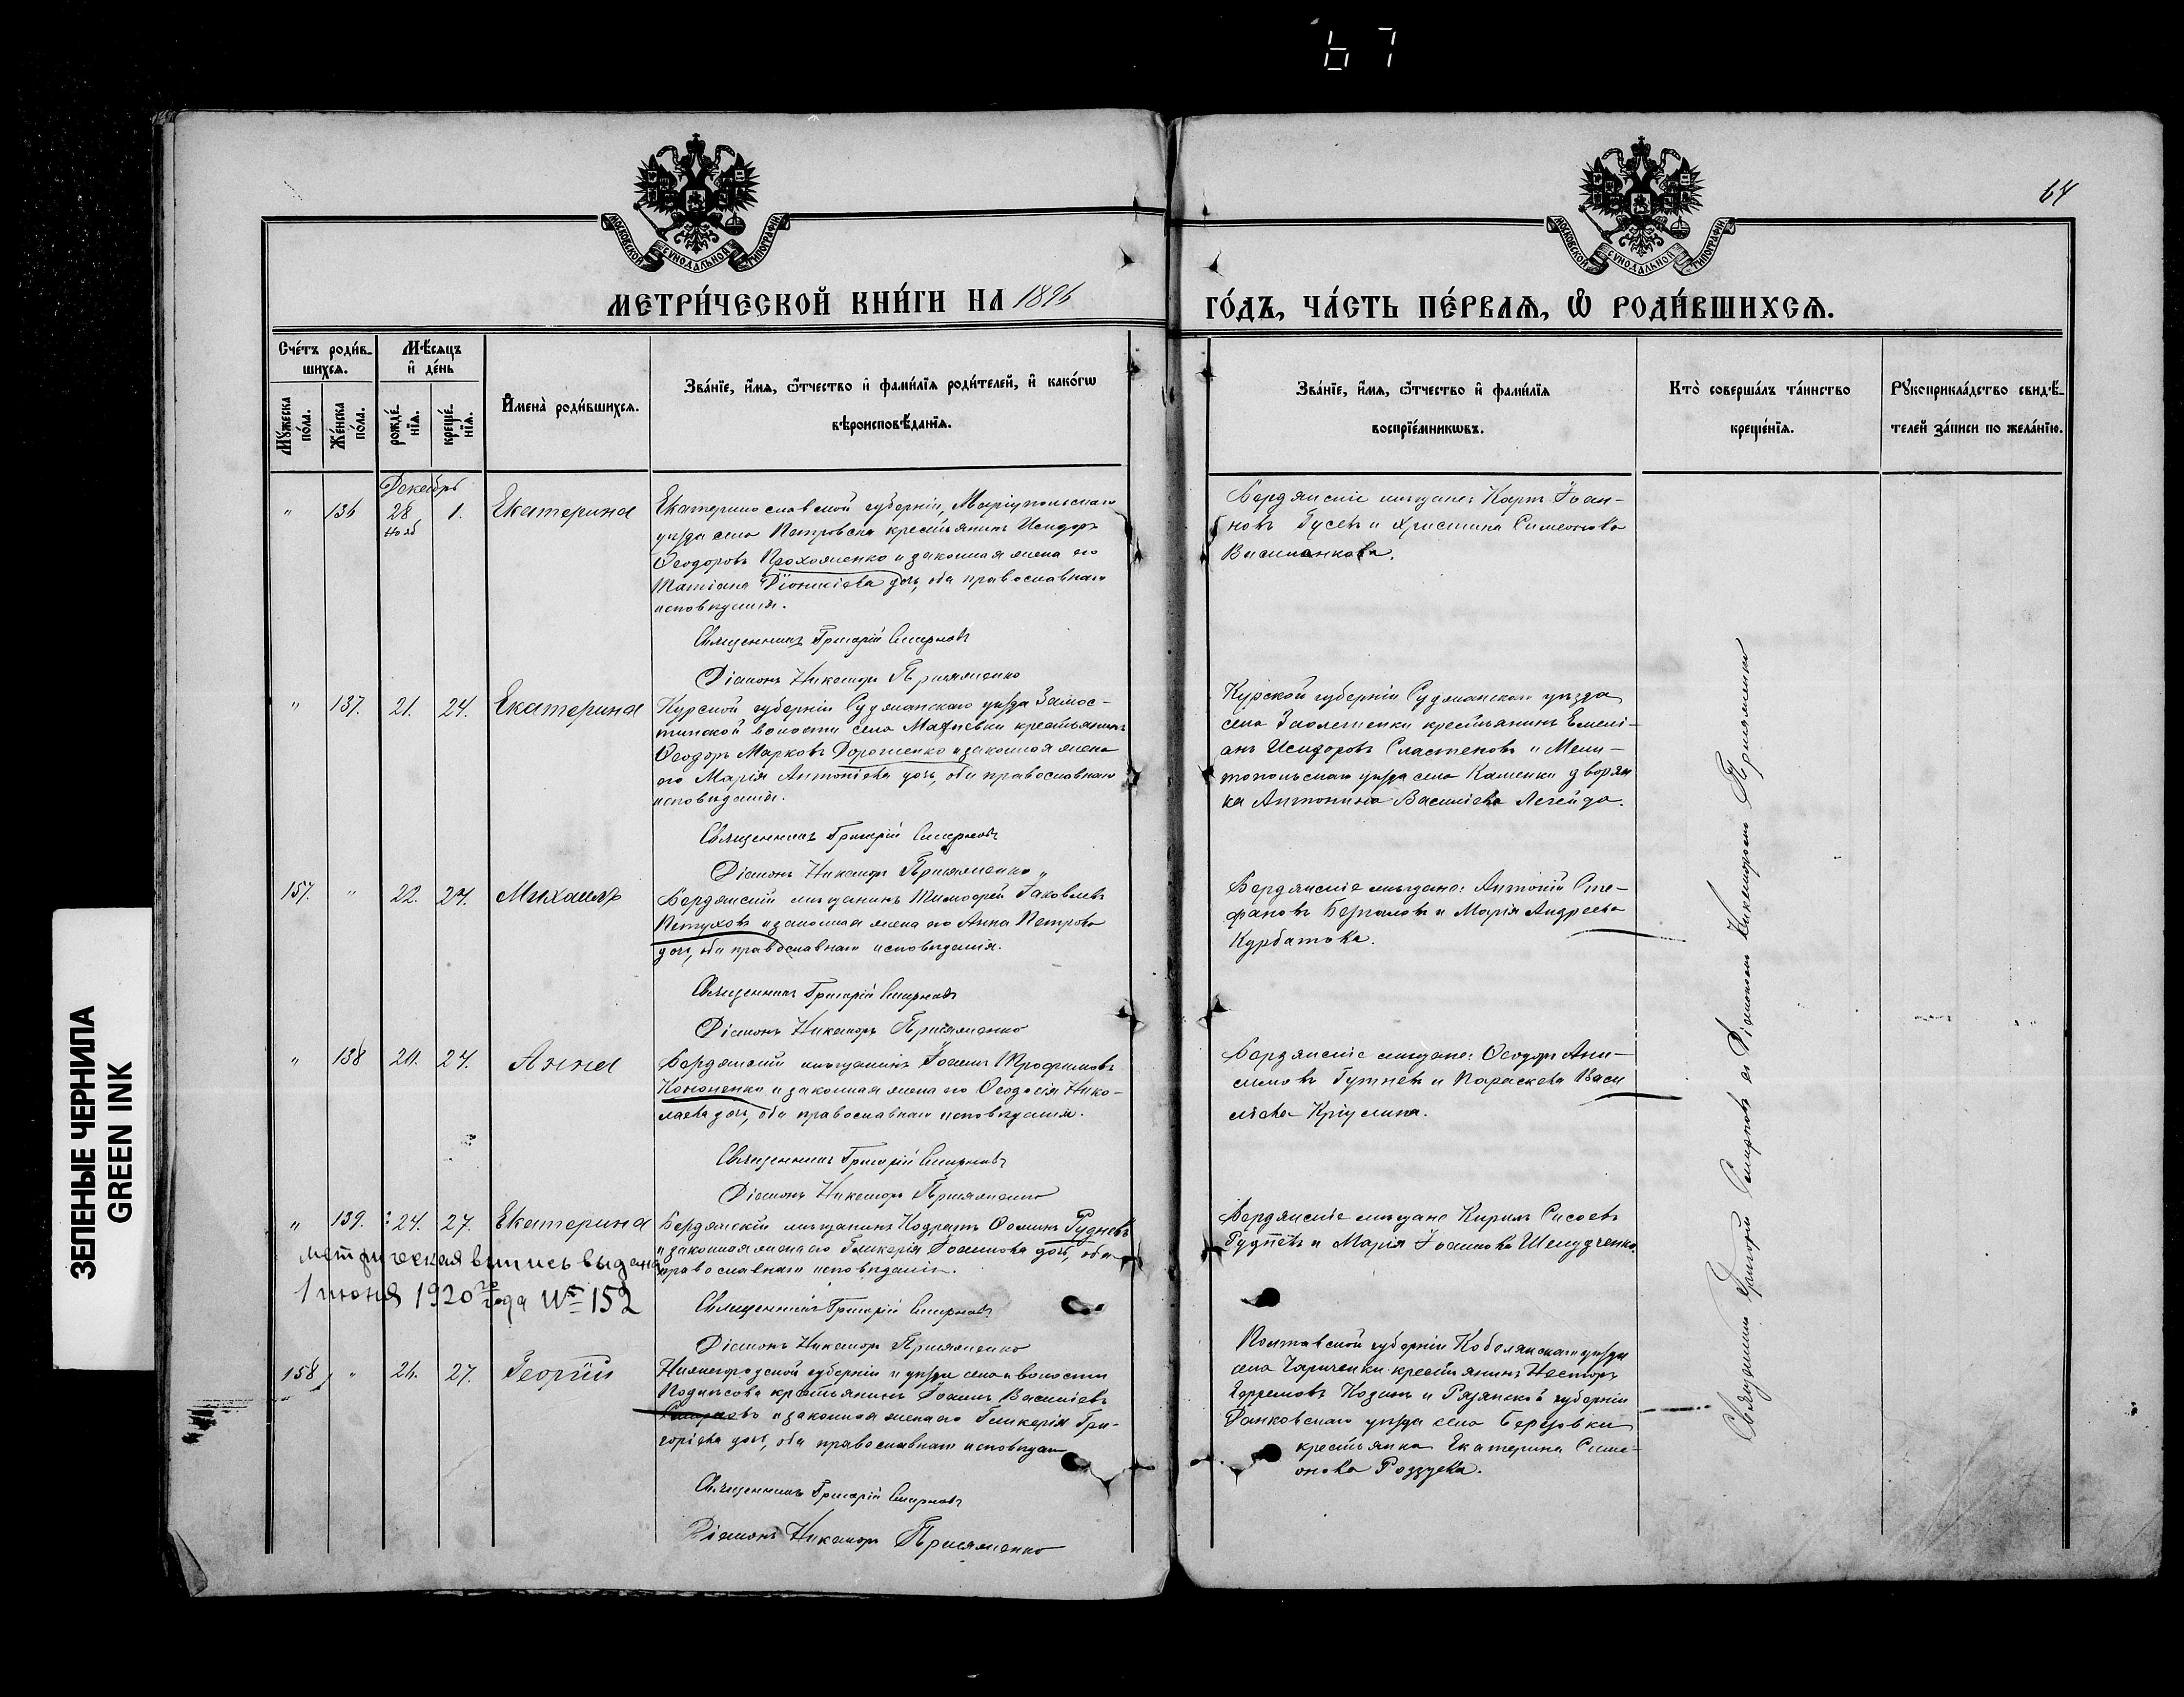 67
64
МОСКОВСКОЙ СУНОДАЛЬНОЙ ТИПОГРАФІИ
МОСКОВСКОЙ СУНОДАЛЬНОЙ ТИПОГРАФІИ
МЕТРИ́ЧЕСКОЙ КНИ́ГИ НА 1896
ГО́ДЪ, ЧА́СТЬ ПЕ́РВАѦ, Ѿ РОДИ́ВШИХСѦ.
Сче́тъ роди́в-
шихсѧ.
Мѣ́сѧцъ
и҆ де́нь
Мꙋ́жеска
по́ла.
Же́нска
по́ла.
рожде́-
нїѧ.
креще́-
нїѧ.
И҆мена̀ роди́вшихсѧ.
Зва́нїе, и҆́мѧ, ѻ҆́тчество и҆ фами́лїѧ роди́телей, и҆ како́гѡ
вѣроисповѣ́данїѧ.
Зва́нїе, и҆́мѧ, ѻ҆́тчество и҆ фами́лїѧ
воспрїе́мникѡвъ.
Кто̀ соверша́лъ та́инство
креще́нїѧ.
Рꙋкоприкла́дство свидѣ́-
телей за́писи по жела́нїю.
Декабрь
" 136 28 нояб 1. Екатерина
Екатеринославской губерніи, Маріупольскаго
уѣзда села Петровска крестьянинъ Исидоръ
Ѳеодоровъ Прохоменко и законная жена его
Татіана Діонисіева дочь, оба православнаго
исповѣданія.
Священникъ Григорій Смирновъ
Діаконъ Никаноръ Присяженко
Бердянскіе мѣщане: Карпъ Іоан-
новъ Гусевъ и Христина Симеонова
" 137. 21. 24. Екатерина
Курской губерніи Суджанскаго уѣзда Замос-
тянской волости села Махновки крестьянинъ
Ѳеодоръ Марковъ Дорошенко и законная жена
его Марія Антоніева дочь, оба православнаго
исповѣданія.
Священникъ Григорій Смирновъ
Діаконъ Никаноръ Присяженко
Курской губерніи Суджанскаго уѣзда
села Заолешенки крестьянинъ Емели-
анъ Исидоровъ Сластеновъ и Мели-
топольскаго уѣзда села Каменки дворян
ка Антонина Василіева Легейдо.
157. " 22. 24. Михаилъ
Бердянскій мѣщанинъ Тимофей Іаковлевъ
Петуховъ и законная жена его Анна Петрова
дочь, оба православнаго исповѣданія.
Священникъ Григорій Смирновъ
Діаконъ Никаноръ Присяженко
Бердянскіе мѣщане: Антоній Сте-
фановъ и Марія Андреева
Курбатова.
" 138 20. 24. Анна
Бердянскій мѣщанинъ Іоаннъ Трофимовъ
Кононенко и законная жена его Ѳеодосія Нико-
лаева дочь, оба православнаго исповѣданія.
Священникъ Григорій Смирновъ
Діаконъ Никаноръ Присяженко
Бердянскіе мѣщане: Ѳеодоръ Ани-
симовъ Гутневъ и Параскева Васи
ліева
" 139. 24. 27. Екатерина
Бердянскій мѣщанинъ Кодратъ Ѳоминъ Рудневъ
и законная жена его Гликерія Іоаннова дочь, оба
православнаго исповѣданія.
метрическая выпись выдана
1 июня 1920 года № 152
Священникъ Григорій Смирновъ
Діаконъ Никаноръ Присяженко
Бердянскіе мѣщане Кирилъ Сисоевъ
Рудневъ и Марія Іоаннова Шелудченко
158 " 26. 27. Георгій
Нижегородской губерніи и уѣзда села и волости
крестьянинъ Іоаннъ Василіевъ
и законная жена его Гликерія Гри-
горіева дочь, оба православнаго исповѣдан
Священникъ Григорій Смирновъ
Діаконъ Никаноръ Присяженко
Полтавской губерніи Кобелякскаго уѣзда
села крестьянинъ Несторъ
Ефремовъ Козинъ и Рязанской губерніи
Ранковскаго уѣзда села Березовки
крестьянка Екатерина Симе-
онова
Священникъ Григорій Смирновъ съ Діакономъ Никаноромъ Присяженко
ЗЕЛЕНЫЕ ЧЕРНИЛА
GREEN INK